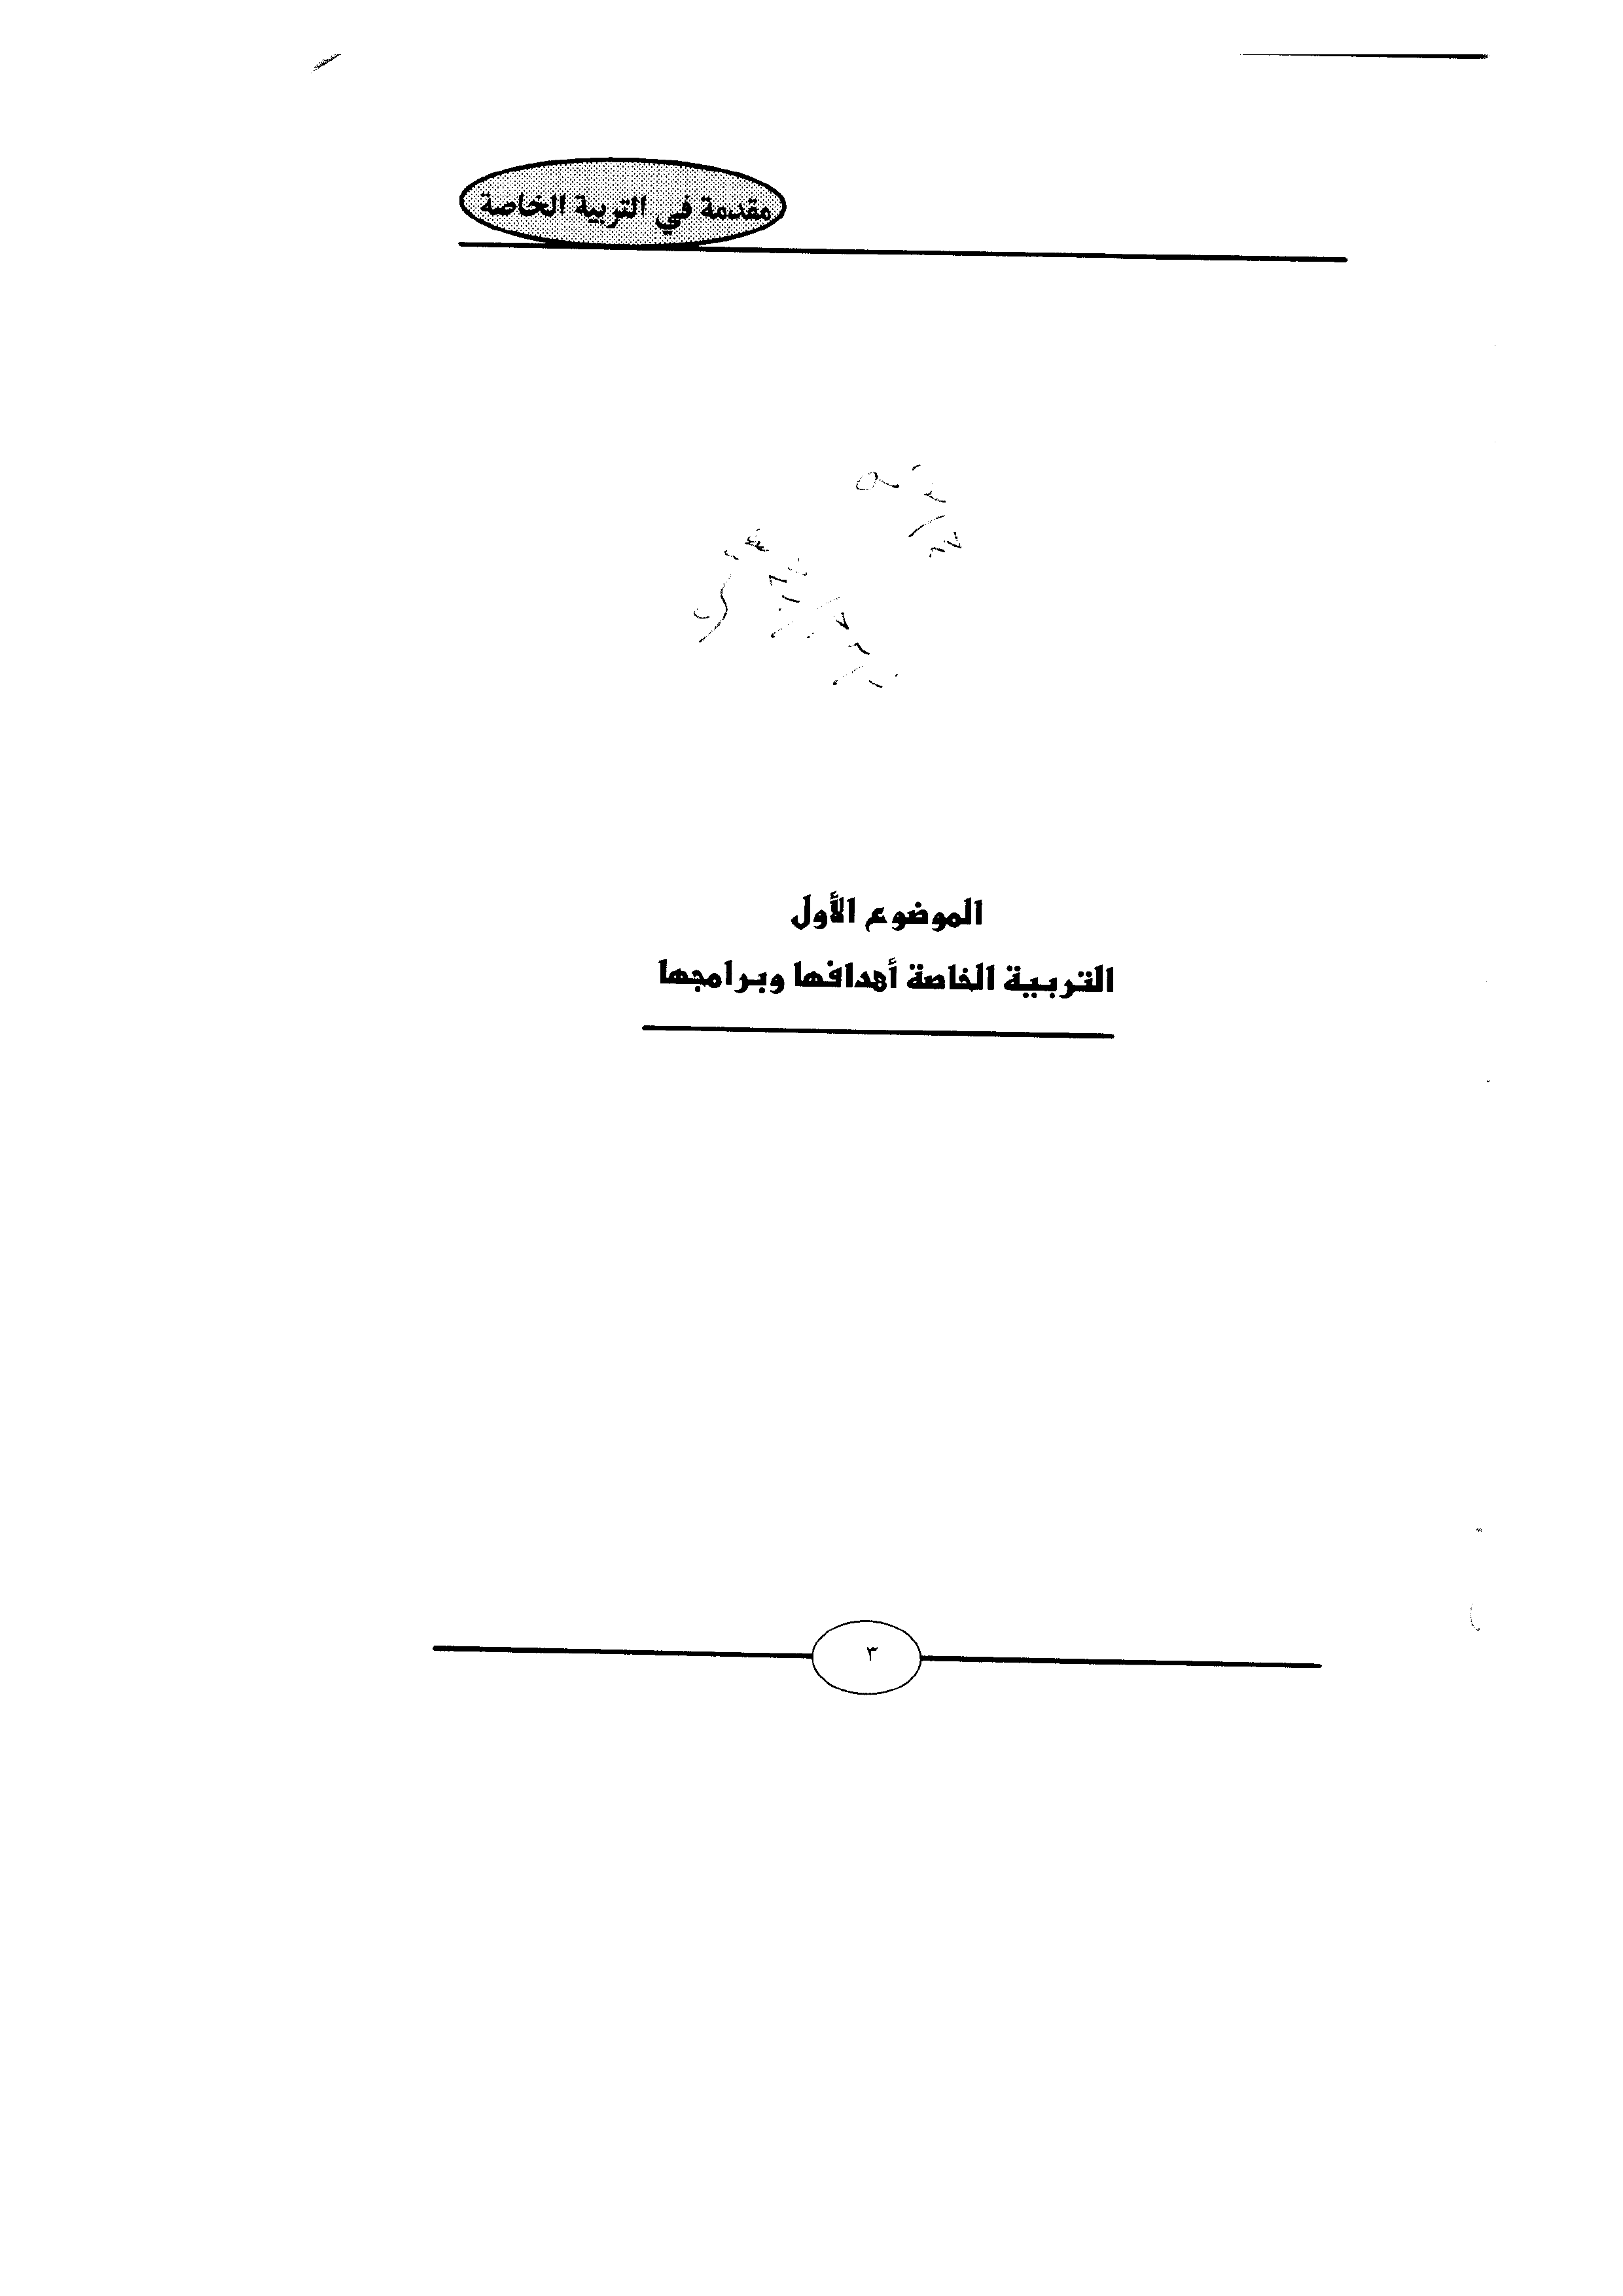 مقدمة في التربية الخاصة
الموضوع الأول
التربية الخاصة أهدافها وبرامجها
٣